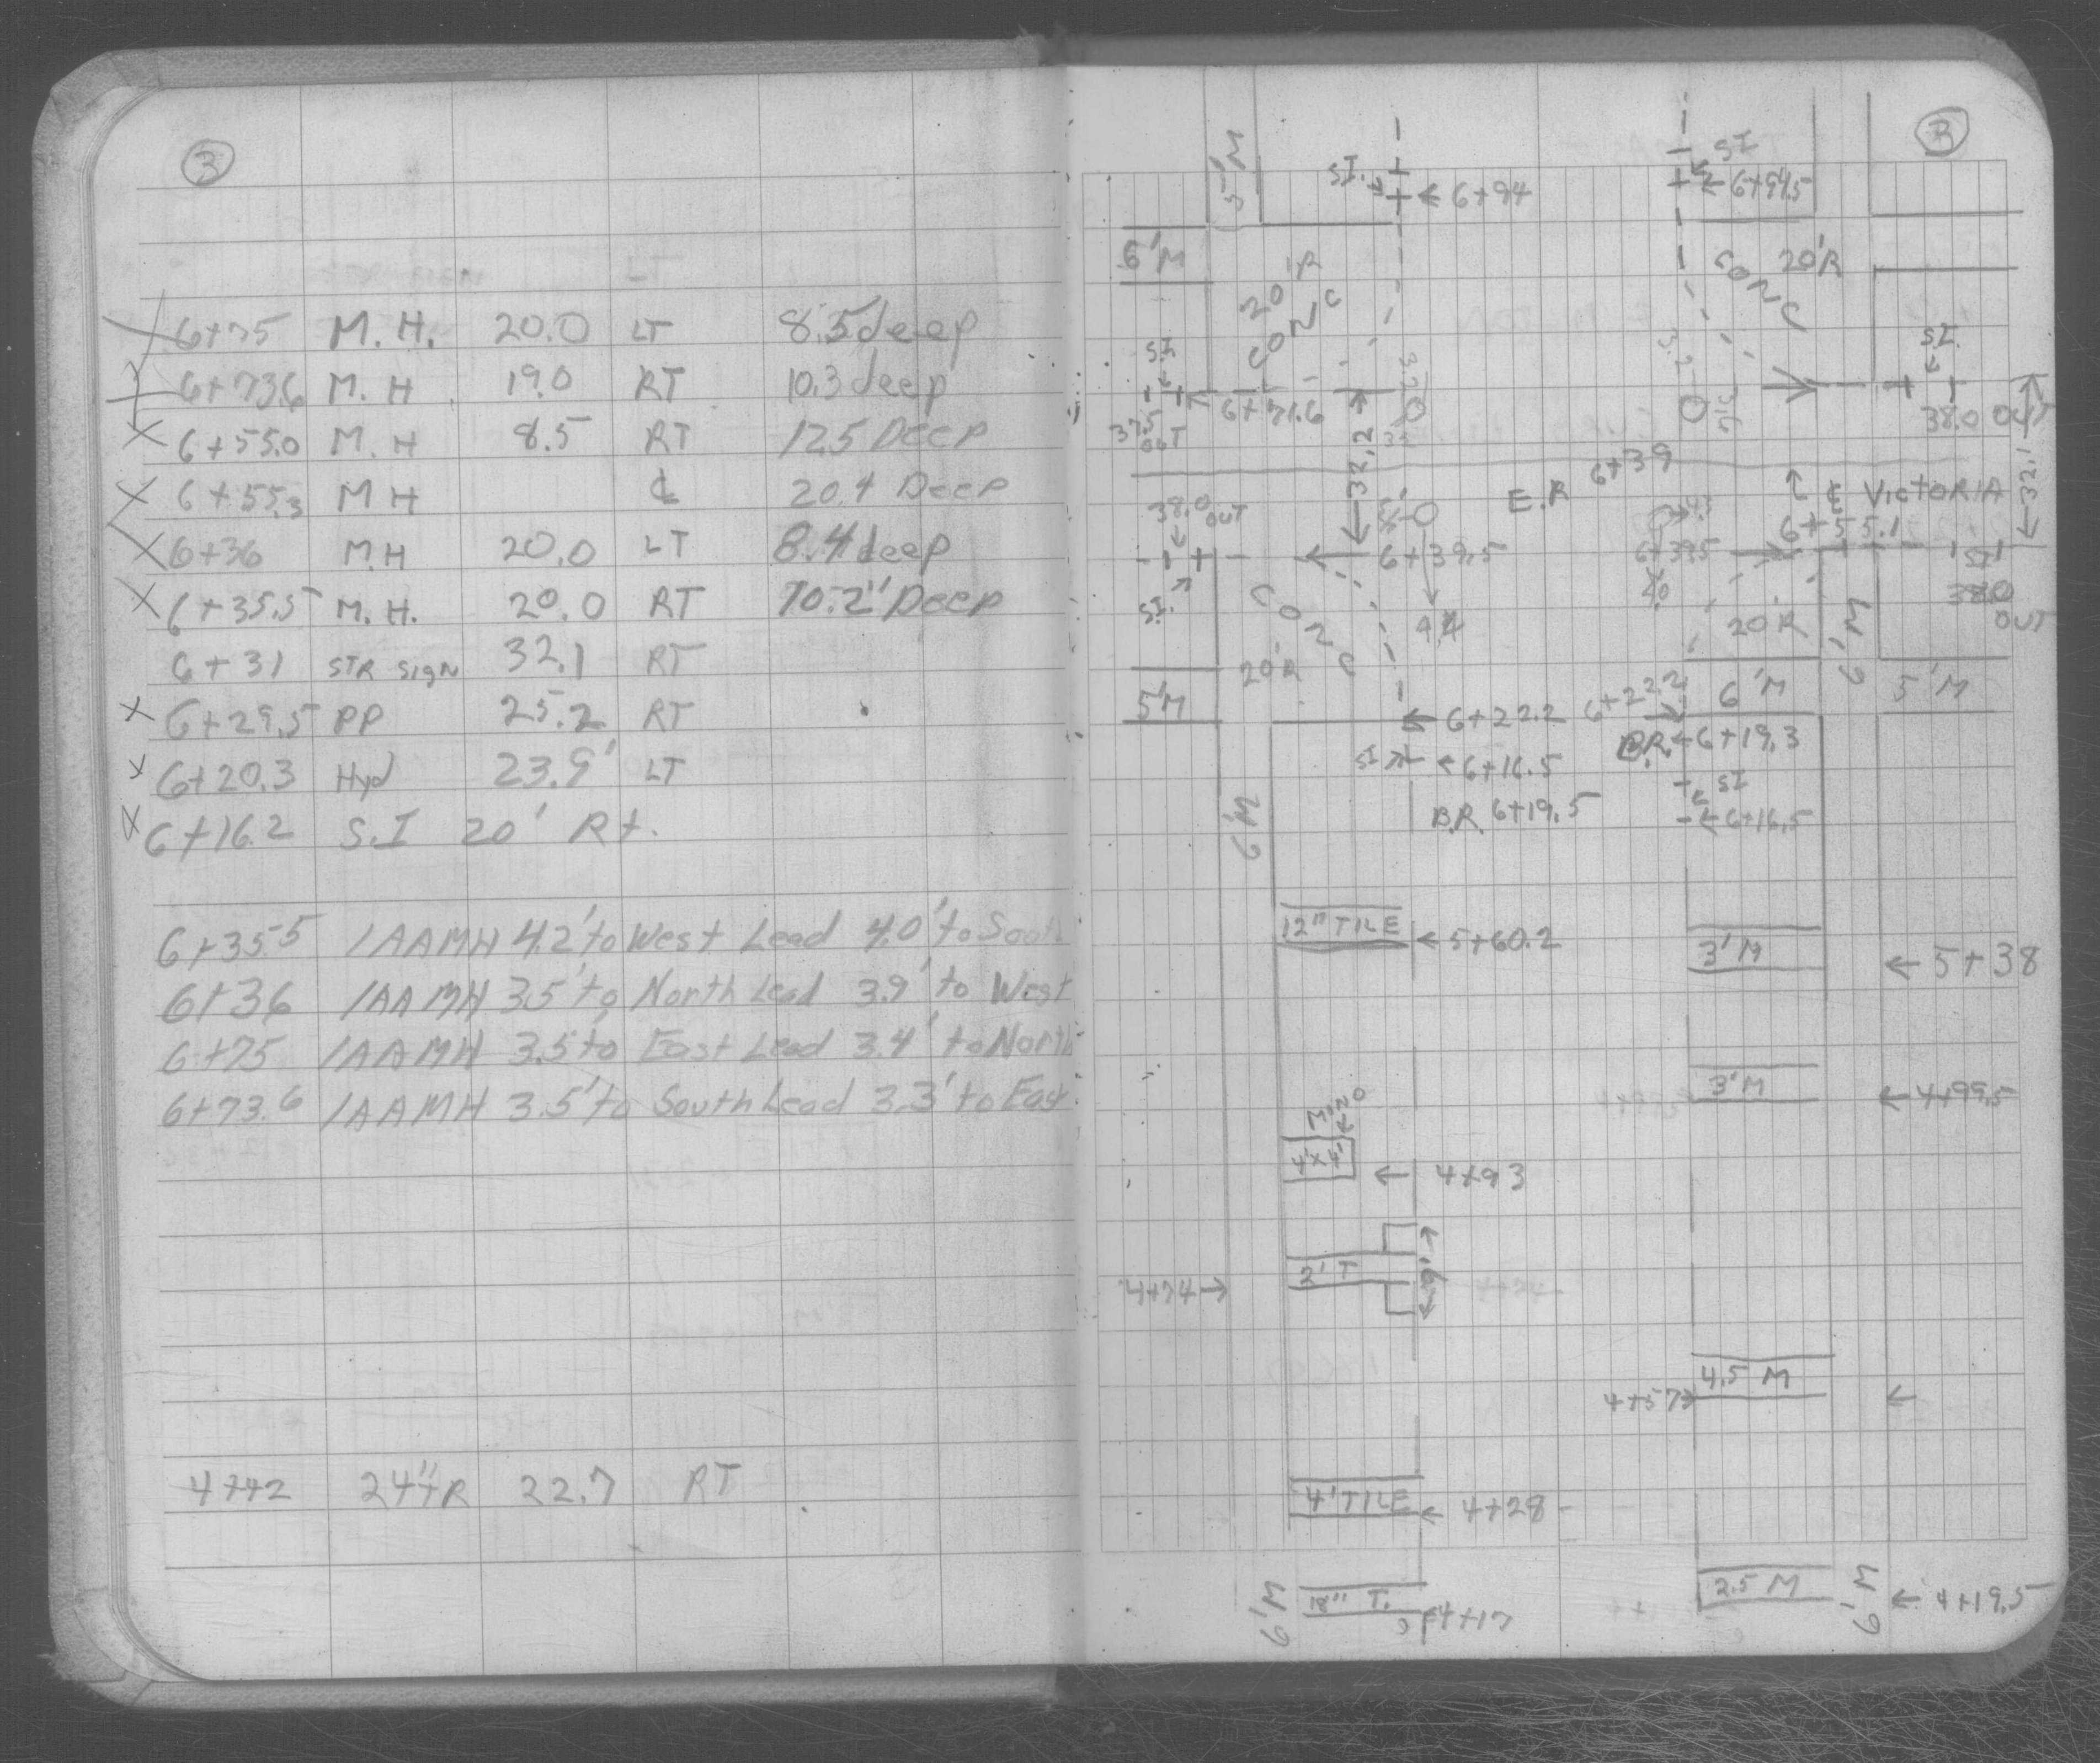 3
6+75 M.H. 20.0 LT 8.5 deep
6+73.6 M.H 19.0 RT 10.3 deep
6+55.0 M.H 8.5 RT 12.5 Deep
6+55.3 MH ℄ 20.4 Deep
6+36 M.H 20.0 LT 8.4 deep
6+35.5 M.H. 20.0 RT 10.2' Deep
6+31 STR SIGN 32.1 RT
6+29.5 PP 25.2 RT
6+20.3 Hyd 23.9' LT
6+16.2 S.I 20' Rt.
6+35.5 1AAMH 4.2' to West Lead 4.0' to South
6+36 1AAMH 3.5' to North Lead 3.9' to West
6+75 1AAMH 3.5' to East Lead 3.4' to North
6+73.6 1AAMH 3.5' to South Lead 3.3' to East
4+42 24"TR 22.7 RT
3
5'M S.I. ← 6+94 SI ← 6+94.5
6'M 20'R CONC CONC 20'R
S.I S.I.
37.5 OUT 6+71.6 32.2 38.0 OUT
E.R 6+39 ℄ VICTORIA 32.1
38.0 OUT 6+55.1
6+39.5 6+39.5 SI
S.I. CONC 4.4 38.0 OUT
20'R 20'R 6'M
5'M ← 6+22.2 6+22.2 6'M 5'M
SI ← 6+16.5 B.R. ← 6+19.3
6'M B.R. 6+19.5 SI ← 6+16.5
12" TILE ← 5+60.2 3'M ← 5+38
3'M ← 4+99.5
4'x4' ← 4+93
4+74 → 2'T 9'
4+57 → 4.5 M ←
4' TILE ← 4+28
6'M 18" T. 4+17 2.5 M 6'M ← 4+19.5